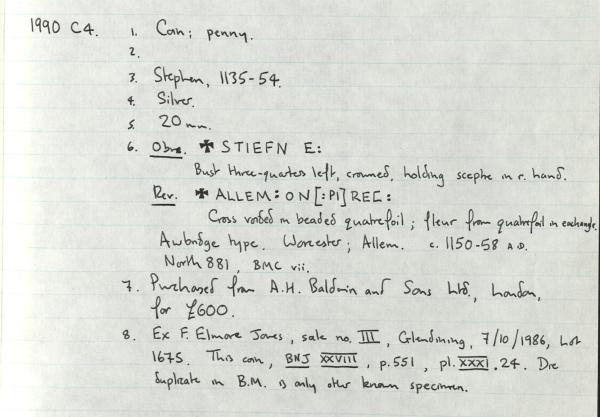 1990 C4. 1. Coin; penny.
2.
3. Stephen, 1135-54.
4. Silver.
5. 20 mm.
6. Obv. ✠ STIEFN E:
Bust three-quarters left, crowned, holding sceptre in r. hand.
Rev. ✠ ALLEM: ON [:PI] REC:
Cross voided in beaded quatrefoil; fleur from quatrefoil in each angle.
Awbridge type. Worcester; Allem. c. 1150-58 A.D.
North 881, BMC vii.
7. Purchased from A.H. Baldwin and Sons Ltd., London,
for £600.
8. Ex F. Elmore Jones, sale no. III, Glendining, 7/10/1986, Lot
1675. This coin, BNJ XXVIII, p.551, pl. XXXI.24. Die
duplicate in B.M. is only other known specimen.